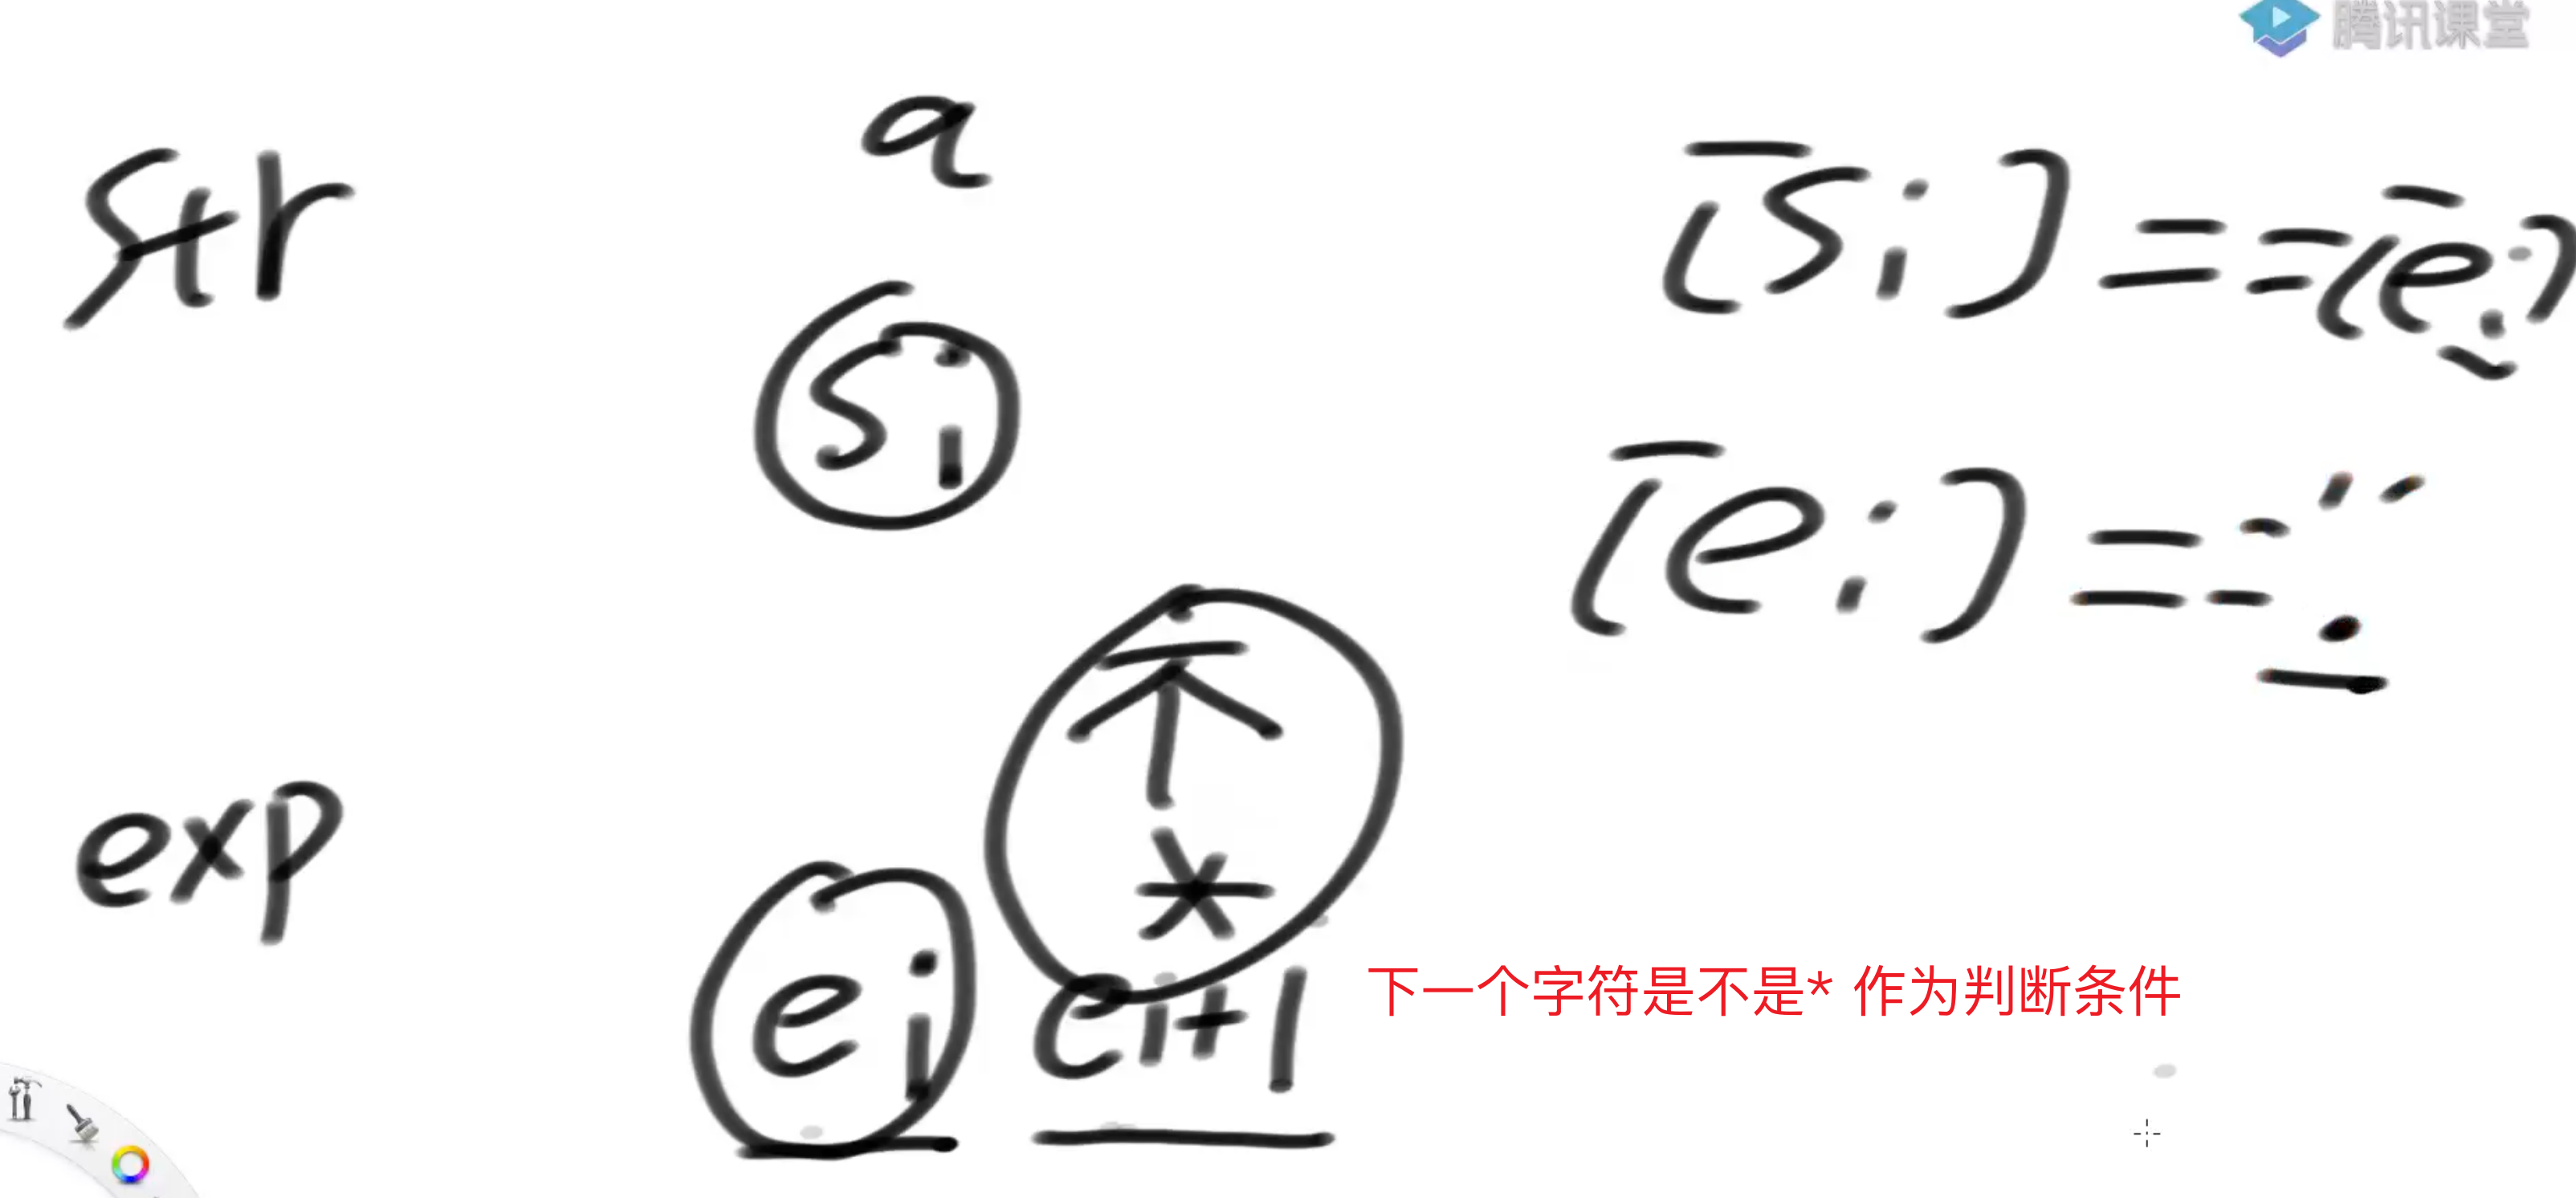 腾讯课堂
str
a
si
[si] == [ei]
[ei] == '.'
不
*
exp
ei
ei+1
下一个字符是不是* 作为判断条件